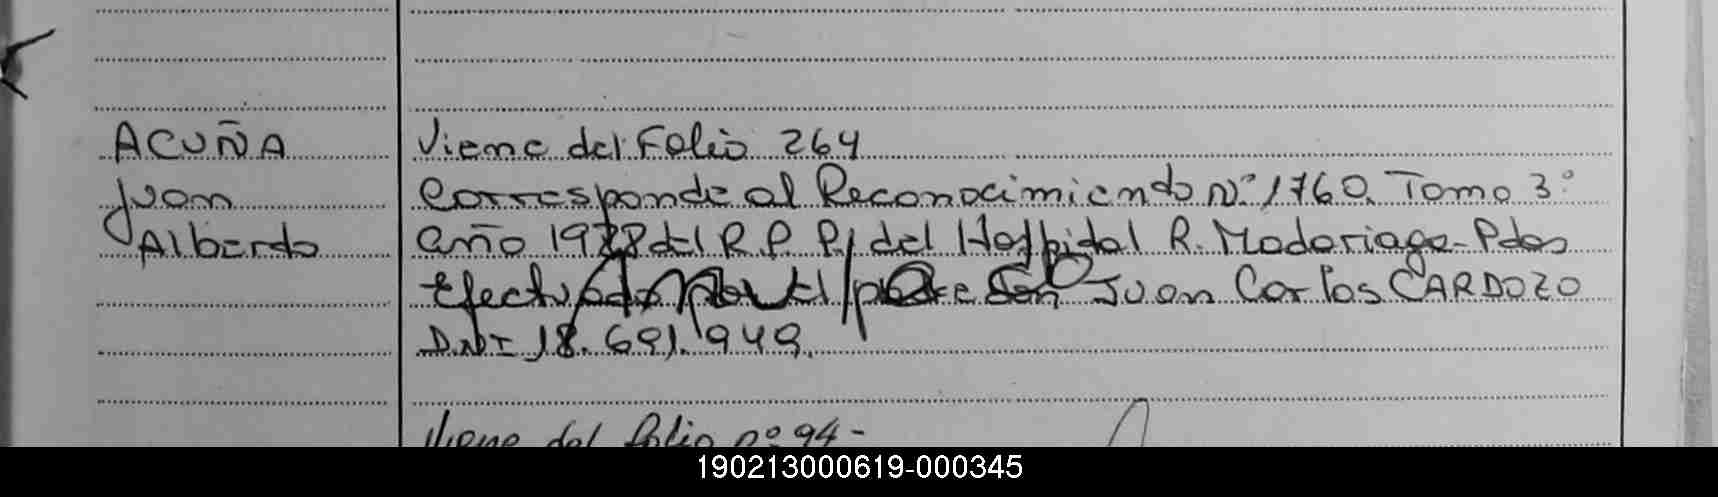 ACUÑA
Juan
Alberto
Viene del Folio 264
Corresponde al Reconocimiento Nº 1760. Tomo 3º
año 1988 del R.P.P./ del Hospital R. Madariaga - Pdas
Efectuado por el padre Juan Carlos CARDOZO
DNI 18.691.949.
Viene del folio nº 94-
190213000619-000345